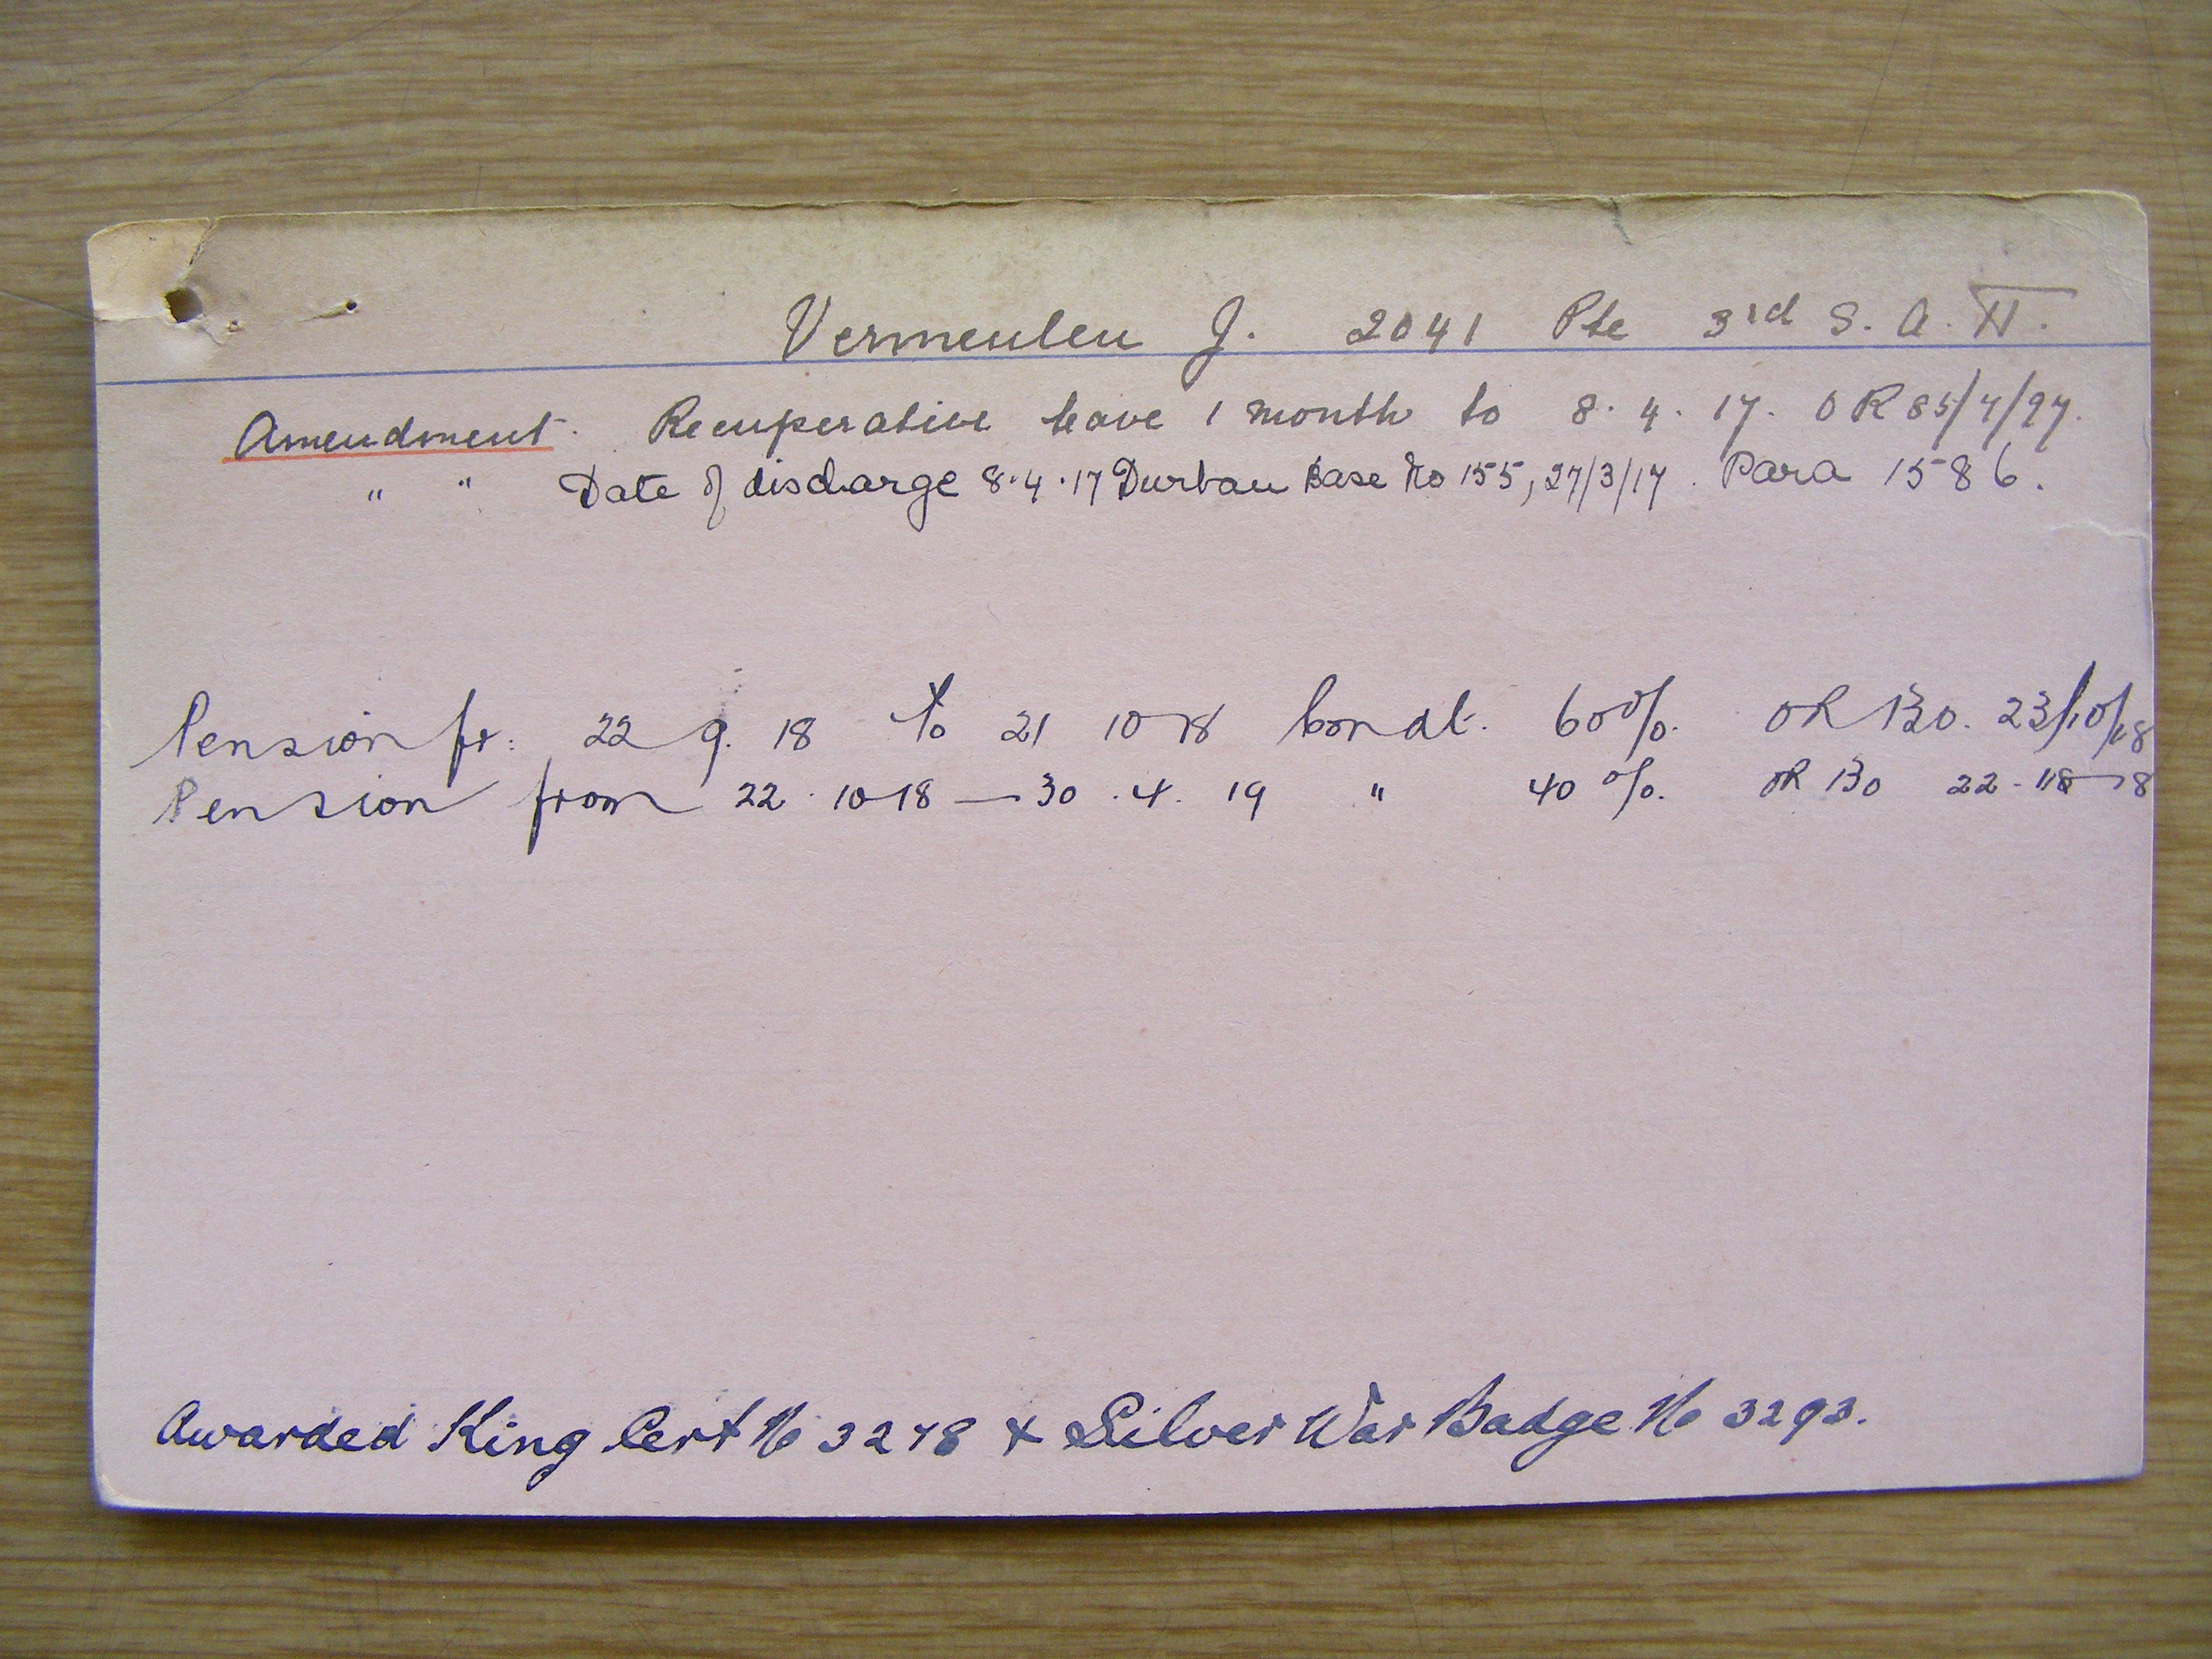 Vermeulen J. 2041 Pte 3rd S. A. H.
Amendment. Recuperative leave 1 month to 8. 4. 17. OR 85/4/97.
" " Date of discharge 8.4.17 Durban Base No 155, 27/3/17. Para 1586.
Pension fr: 22 9. 18 to 21 10 18 Condl. 60%. OR 130. 23/10/18
Pension from 22. 10 18 — 30. 4. 19 " 40 %. OR 130 22-
Awarded King Cert No 3278 & Silver War Badge No 3293.